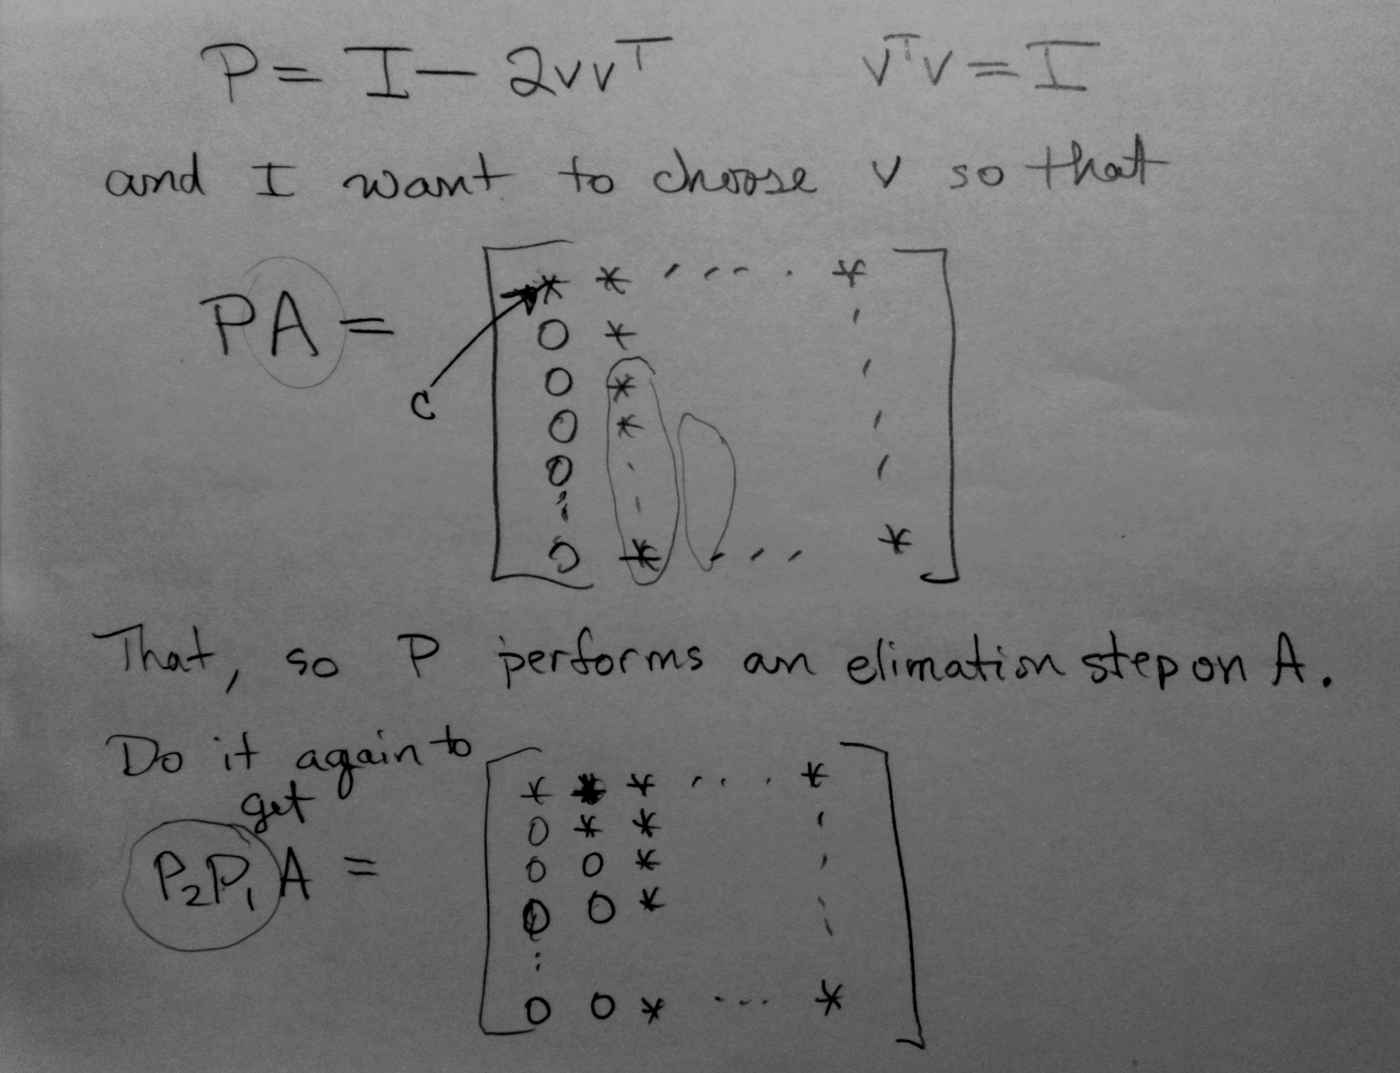 P = I - 2vv^T   v^Tv = I
and I want to choose v so that
PA = [ * * ... *
0 * '
0 * '
0 * '
0 . '
⋮ '
0 * ... * ]
c
That, so P performs an elimation step on A.
Do it again to
get
P₂P₁A = [ * * * ... *
0 * * '
0 0 * '
0 0 * '
⋮
0 0 * ... * ]